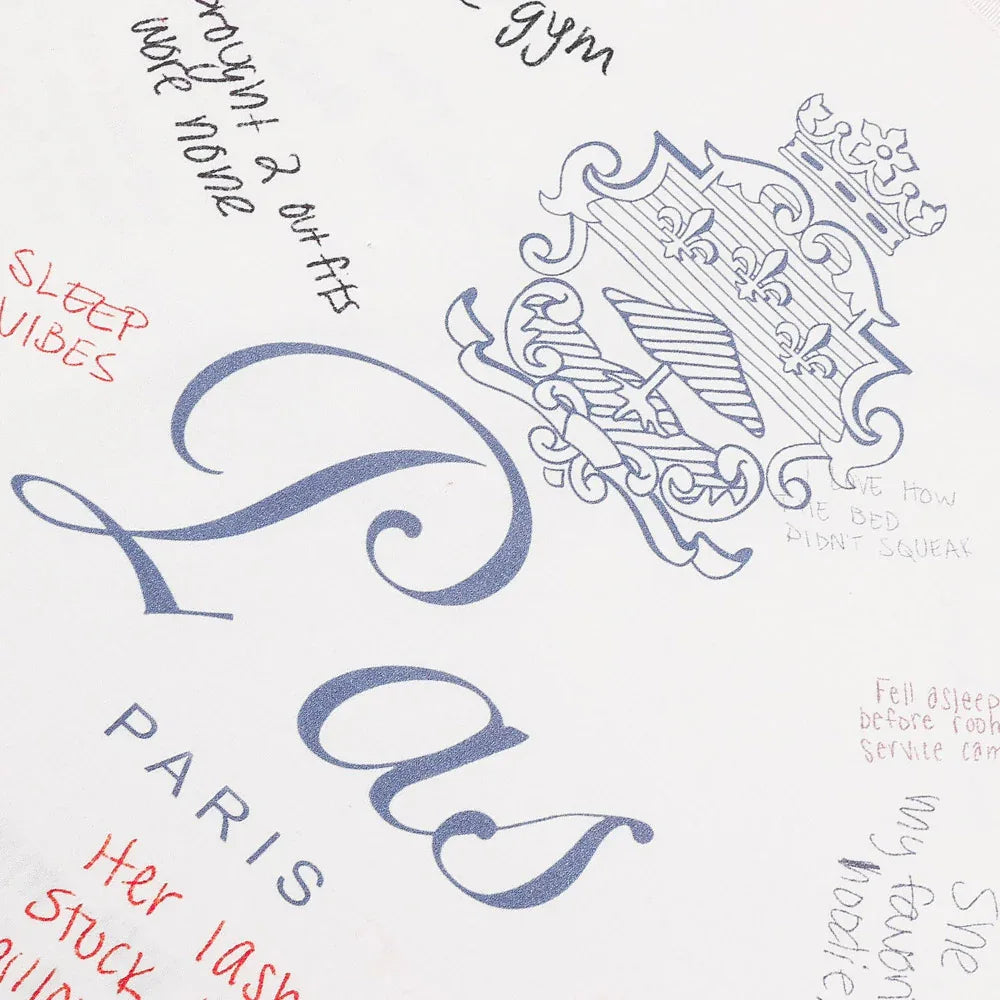 gym
brought 2 outfits
wore none
SLEEP
VIBES
Pas
PARIS
I LOVE HOW
THE BED
DIDN'T SQUEAK
Fell asleep
before room
service cam
She
my favori
hoodie
Her lash
Stuck